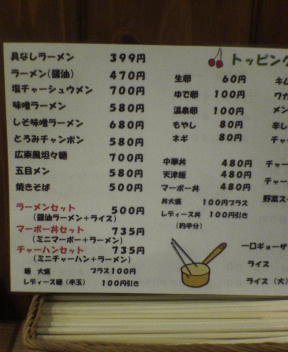 具なしラーメン 399円
ラーメン(醤油) 470円
塩チャーシュウメン 700円
味噌ラーメン 580円
しそ味噌ラーメン 680円
とろみチャンポン 580円
広東風坦々麺 700円
五目メン 580円
焼きそば 500円
ラーメンセット 500円
(醤油ラーメン+ライス)
マーボー丼セット 735円
(ミニマーボー+ラーメン)
チャーハンセット 735円
(ミニチャーハン+ラーメン)
麺 大盛 プラス100円
レディース麺(半玉) 100円引き
トッピング
生卵 60円
ゆで卵 100円
温泉卵 100円
もやし 80円
ネギ 80円
中華丼 480円
天津麺 480円
マーボー丼 480円
丼大盛 100円プラス
レディース丼 100円引き
(約半分)
キム
ワカ
メン
辛し
チャー
チャー
チャ
野菜ス
一口ギョーザ
ライス
ライス(大)